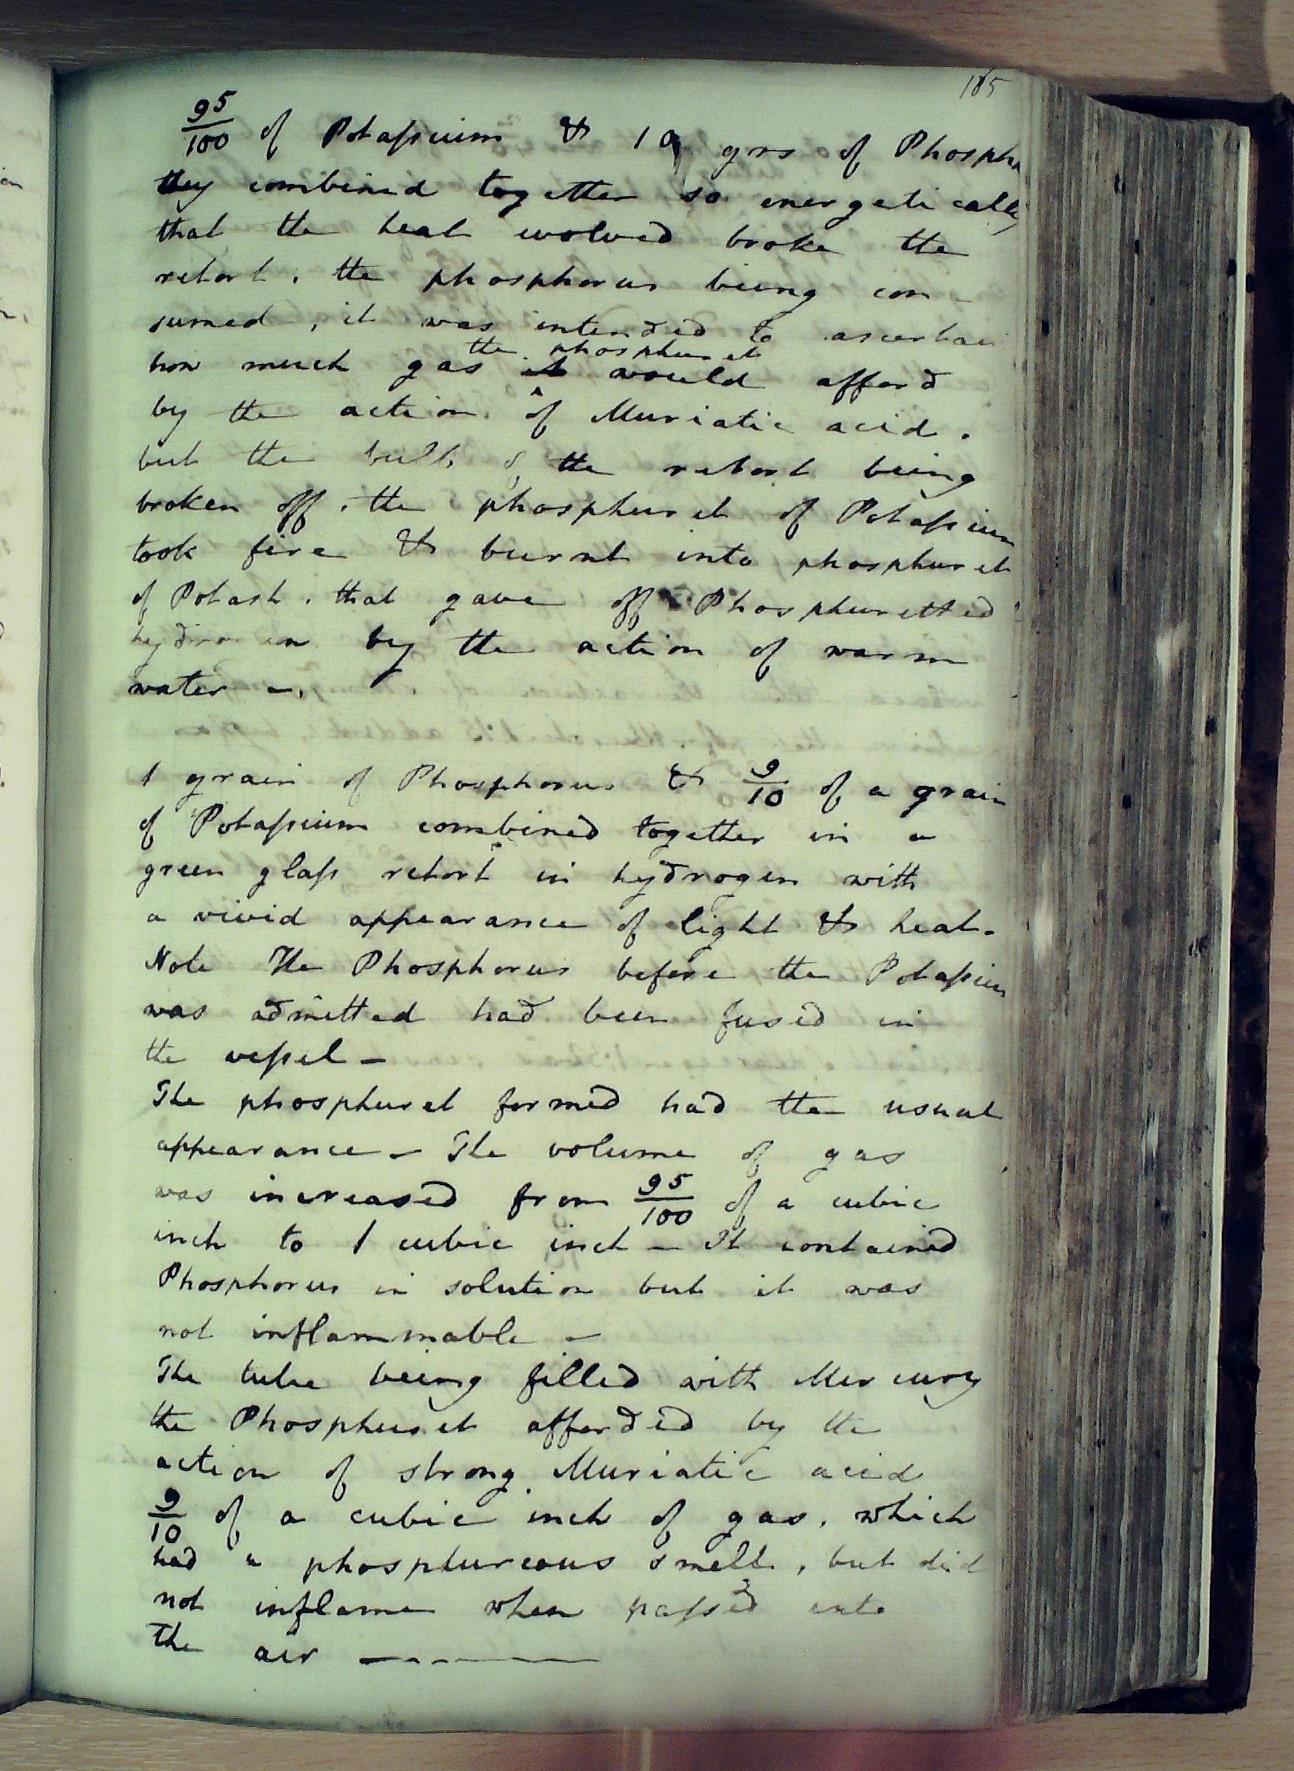 165
95/100 of Potaſsium & 10 grs of Phospho
they combined together so energetically
that the heat evolved broke the
retort. the phosphorus being con
sumed, it was intended to ascertain
the phosphuret
how much gas it would afford
by the action of Muriatic acid.
but the bulb of the retort being
broken off. the phosphuret of Potaſsium
took fire & burnt into phosphuret
of Potash. that gave off Phosphuretted
hydrogen by the action of warm
water -.
1 grain of Phosphorus & 9/10 of a grain
of Potaſsium combined together in a
green glaſs retort in hydrogen with
a vivid appearance of light & heat.
Note The Phosphorus before the Potaſsium
was admitted had been fused in
the veſsel -
The phosphuret formed had the usual
appearance - The volume of gas
was increased from 95/100 of a cubic
inch to 1 cubic inch - It contained
Phosphorus in solution but it was
not inflammable -
The tube being filled with Mercury
the Phosphuret afforded by the
action of strong Muriatic acid
9/10 of a cubic inch of gas. which
had a phosphureous smell, but did
not inflame when paſsed into
the air -